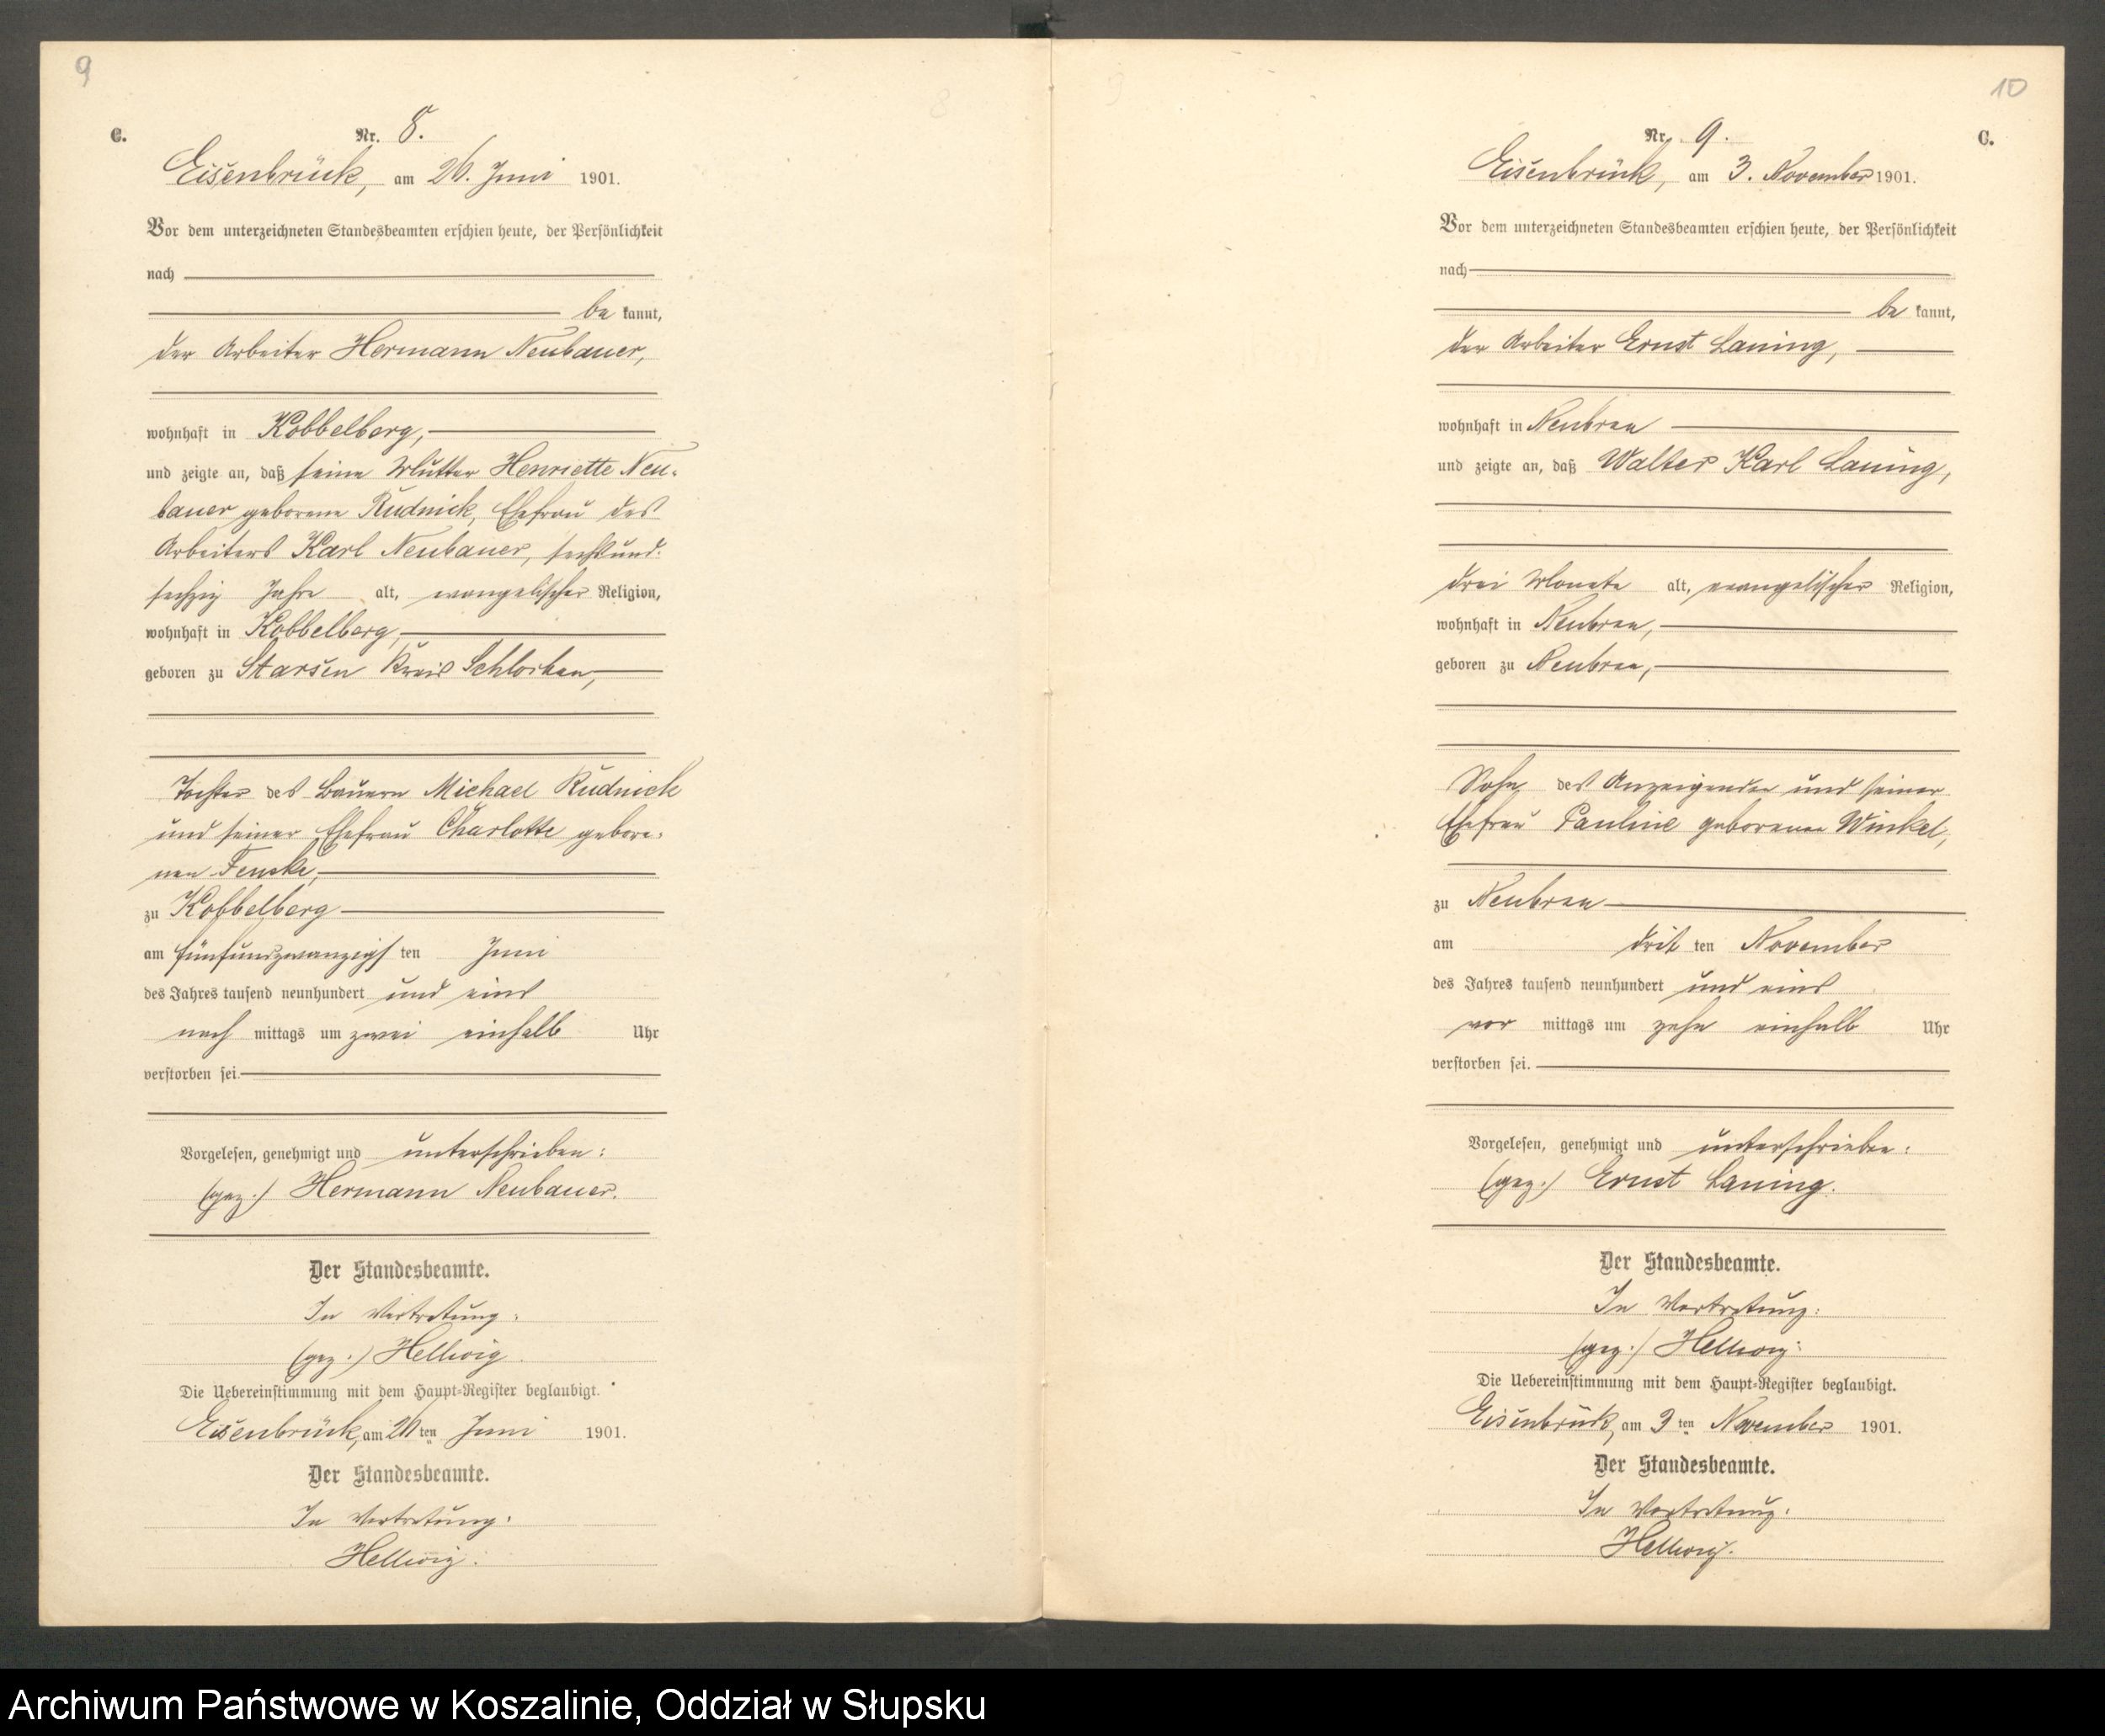 9
C.
Nr. 8.
Eisenbrück, am 26. Juni 1901.
Vor dem unterzeichneten Standesbeamten erschien heute, der Persönlichkeit
nach
be kannt,
der Arbeiter Hermann Neubauer,
wohnhaft in Kobbelberg,
und zeigte an, daß seine Mutter Henriette Neu-
bauer geborene Rudnick, Ehefrau des
Arbeiters Karl Neubauer, sechsund-
sechzig Jahre alt, evangelischer Religion,
wohnhaft in Kobbelberg,
geboren zu Starsen Kreis Schlochau,
Tochter des Bauern Michael Rudnick
und seiner Ehefrau Charlotte gebore-
nen Fenske,
zu Kobbelberg
am fünfundzwanzigs ten Juni
des Jahres tausend neunhundert und eins
nach mittags um zwei einhalb Uhr
verstorben sei.
Vorgelesen, genehmigt und unterschrieben:
(gez.) Hermann Neubauer.
Der Standesbeamte.
In Vertretung:
(gez.) Hellwig.
Die Uebereinstimmung mit dem Haupt-Register beglaubigt.
Eisenbrück, am 26 ten Juni 1901.
Der Standesbeamte.
In Vertretung:
Hellwig.
10
Nr. 9.
C.
Eisenbrück, am 3. November 1901.
Vor dem unterzeichneten Standesbeamten erschien heute, der Persönlichkeit
nach
be kannt,
der Arbeiter Ernst Laning,
wohnhaft in Neubrau
und zeigte an, daß Walter Karl Laning,
drei Monate alt, evangelischer Religion,
wohnhaft in Neubrau,
geboren zu Neubrau,
Sohn des Anzeigenden und seiner
Ehefrau Pauline geborenen Winkel,
zu Neubrau
am drit ten November
des Jahres tausend neunhundert und eins
vor mittags um zehn einhalb Uhr
verstorben sei.
Vorgelesen, genehmigt und unterschrieben:
(gez.) Ernst Laning.
Der Standesbeamte.
In Vertretung:
(gez.) Hellwig.
Die Uebereinstimmung mit dem Haupt-Register beglaubigt.
Eisenbrück, am 3 ten November 1901.
Der Standesbeamte.
In Vertretung:
Hellwig.
Archiwum Państwowe w Koszalinie, Oddział w Słupsku